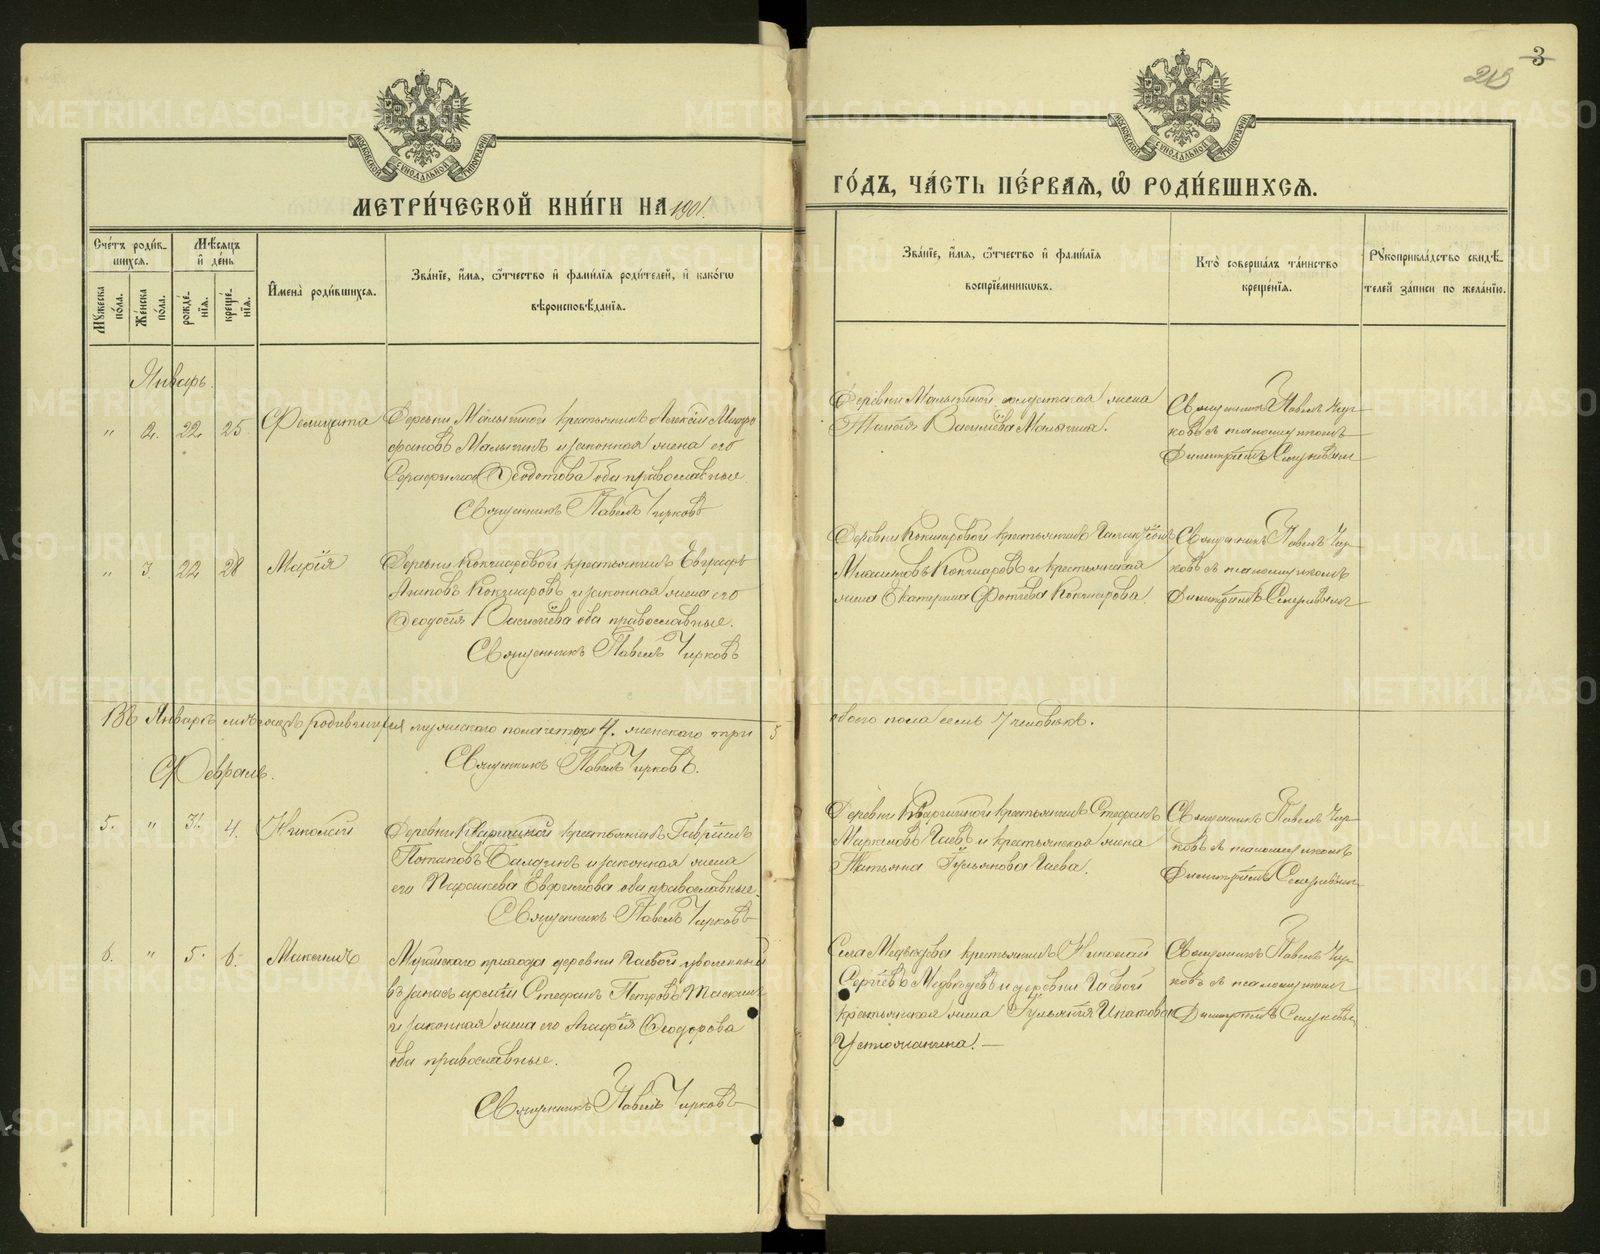 3
219
МОСКОВСКОЙ СУНОДАЛЬНОЙ ТИПОГРАФІИ
МОСКОВСКОЙ СУНОДАЛЬНОЙ ТИПОГРАФІИ
МЕТРИ́ЧЕСКОЙ КНИ́ГИ НА 1901.
ГО́ДЪ, ЧА́СТЬ ПЕ́РВАѦ, Ѡ҆ РОДИ́ВШИХСѦ.
Сче́тъ роди́в-
шихсѧ.
Мꙋ́жеска по́ла.
Же́нска по́ла.
Мѣ́сѧцъ и҆ де́нь.
рожде́-
нїѧ.
креще́-
нїѧ.
И҆мена̀ роди́вшихсѧ.
Зва́нїе, и҆́мѧ, ѻ҆́тчество и҆ фамил́їѧ роди́телей, и҆ како́гѡ
вѣроисповѣ́данїѧ.
Зва́нїе, и҆́мѧ, ѻ҆́тчество и҆ фами́лїѧ
воспрїе́мникѡвъ.
Кто̀ соверша́лъ та́инство
креще́нїѧ.
Рꙋкоприкла́дство свидѣ́-
телей за́писи по жела́нїю.
Январь.
" 2. 22. 25. Фелицата
Деревни Малыгиной крестьянинъ Алексій Митро
фановъ Малыгинъ и законная жена его
Серафима Ѳеодотова оба православные.
Священникъ Павелъ Чирковъ
Деревни Малыгиной солдатская жена
Таисія Василіева Малыгина.
Священникъ Павелъ Чир-
ковъ съ псаломщикомъ
Димитріемъ
" 3. 22 28 Марія
Деревни Кокшаровой крестьянинъ Евграфъ
Кокшаровъ и законная жена его
Ѳеодосія Василіева оба православные.
Священникъ Павелъ Чирковъ
Деревни Кокшаровой крестьянинъ
Кокшаровъ и крестьянская
жена Екатерина Фотіева Кокшарова.
Священникъ Павелъ Чир-
ковъ съ псаломщикомъ
Димитріемъ
Въ Январѣ мѣсяцѣ родившихся мужескаго пола четыре 4. женскаго три 3
обоего пола семь 7 человѣкъ.
Священникъ Павелъ Чирковъ.
Февраль.
5. " 31. 4. Николай
Деревни крестьянинъ Гавріилъ
Потаповъ Балдинъ и законная жена
его Параскева Евфимова оба православные.
Священникъ Павелъ Чирковъ
Деревни крестьянинъ Стефанъ
Маркеловъ Гаевъ и крестьянская жена
Татьяна Гаева.
Священникъ Павелъ Чир-
ковъ съ псаломщикомъ
Димитріемъ
6. " 5. 6. Максимъ
прихода деревни Гаевой уволенный
въ запасъ арміи Стефанъ Петровъ
и законная жена его Агафія Ѳеодорова
оба православные.
Священникъ Павелъ Чирковъ
Села Медвѣдева крестьянинъ Николай
Сергіевъ Медвѣдевъ и деревни Гаевой
крестьянская жена Іульянія Ипатова
Устюжанина. —
Священникъ Павелъ Чир-
ковъ съ псаломщикомъ
Димитріемъ
METRIKI.GASO-URAL.RU